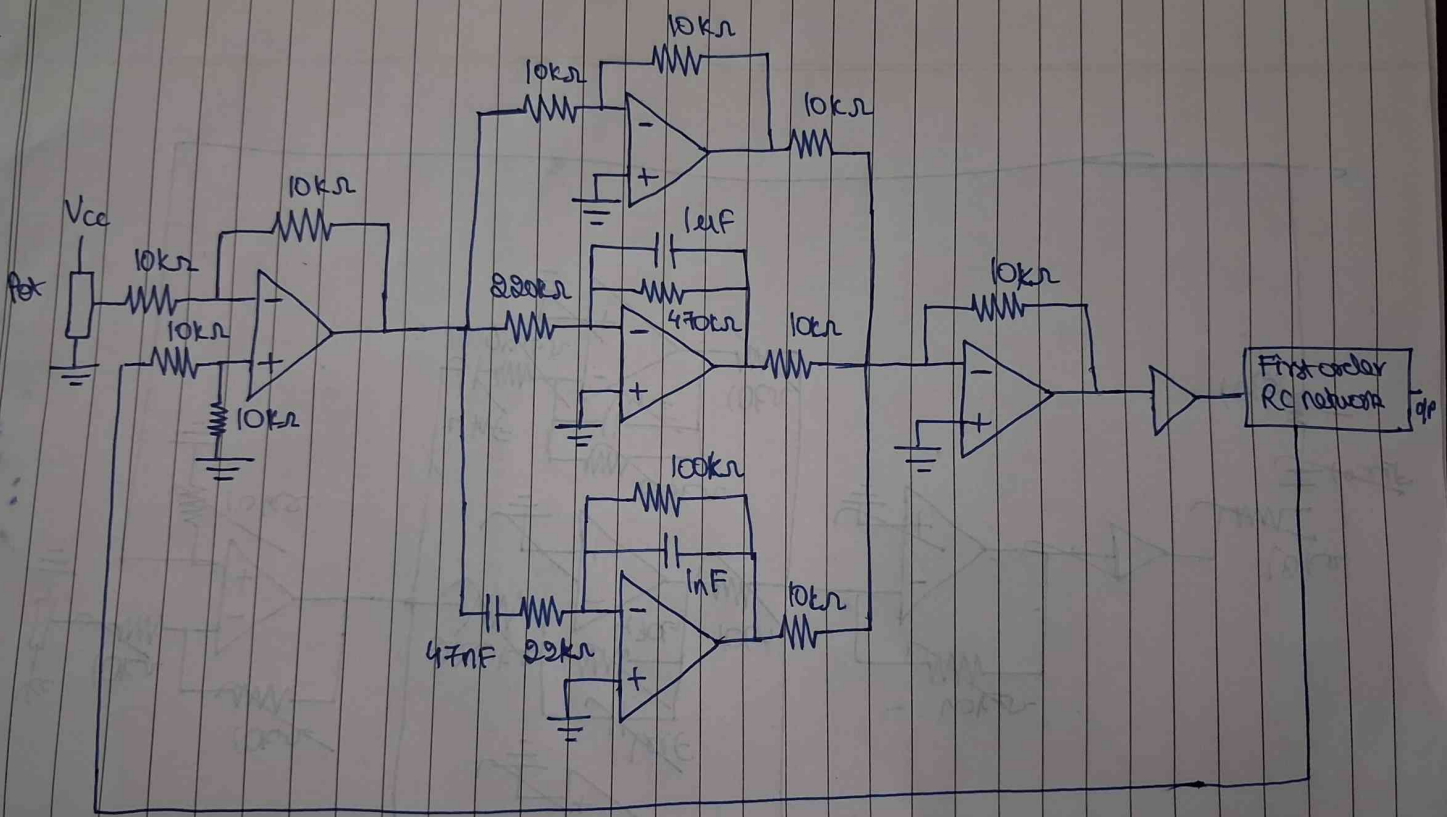 10kΩ
10kΩ
10kΩ
-
+
10kΩ
Vcc
Pot
10kΩ
-
10kΩ
+
10kΩ
1uF
220kΩ
470kΩ
-
+
10kΩ
10kΩ
-
+
First order
RC network
o/p
100kΩ
1nF
47nF
22kΩ
-
+
10kΩ